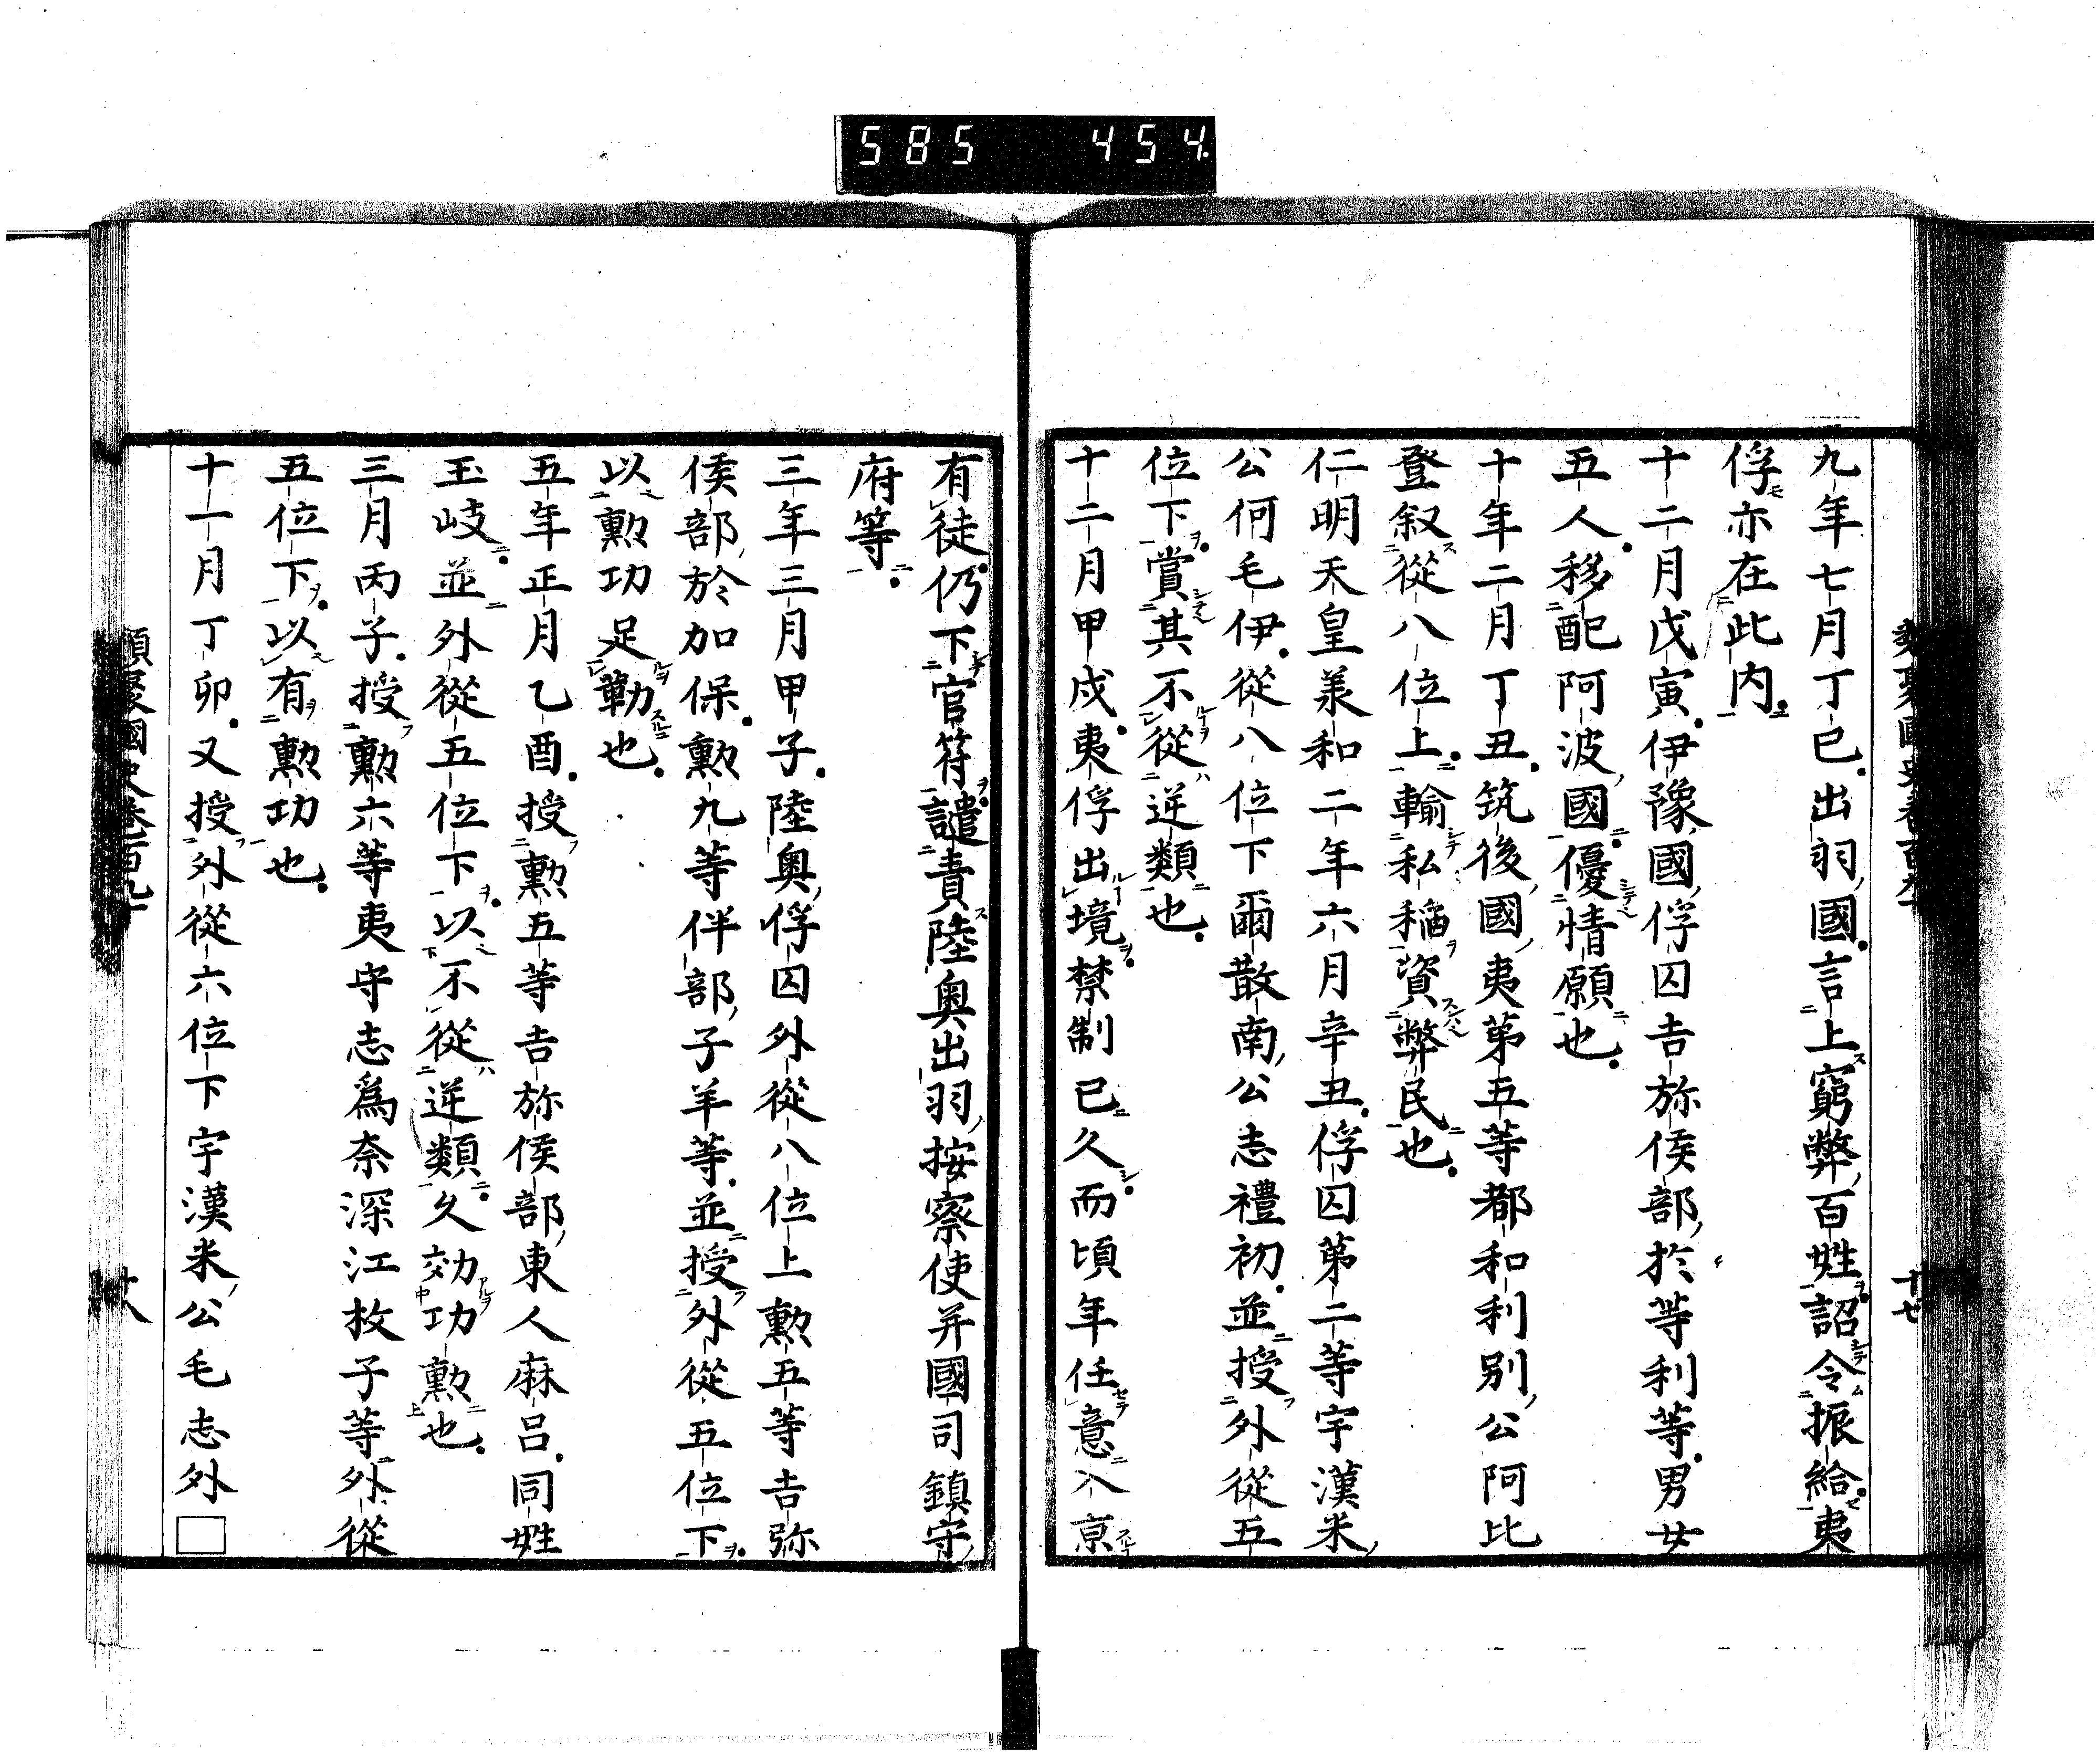 585 454
九年七月丁巳出羽國言上窮弊百姓詔令振給夷
俘亦在此内
十二月戊寅伊豫國俘囚吉弥侯部於等利等男女
五人移配阿波國優情願也
十年二月丁丑筑後國夷第五等都和利別公阿比
登叙從八位上輸私稲資弊民也
仁明天皇羕和二年六月辛丑俘囚第二等宇漢米
公何毛伊從八位下爾散南公志禮初並授外從五
位下賞其不從逆類也
十二月甲戌夷俘出境禁制已久而頃年任意入京
十七
有徒仍下官符譴責陸奥出羽按察使并國司鎮守
府等
三年三月甲子陸奥俘囚外從八位上勲五等吉弥
侯部於加保勲九等伴部子羊等並授外從五位下
以勲功足勸也
五年正月乙酉授勲五等吉弥侯部東人麻呂同姓
玉岐並外從五位下以不從逆類久効功勲也
三月丙子授勲六等夷守志為奈深江枚子等外從
五位下以有勲功也
十一月丁卯又授外從六位下宇漢米公毛志外□
類聚國史卷百九十